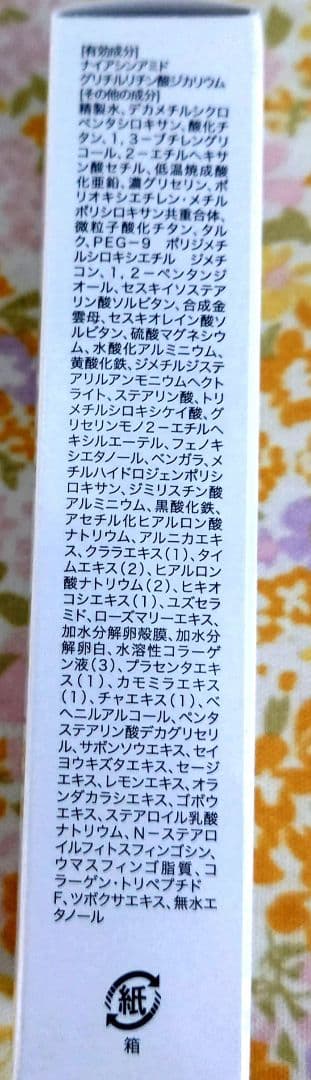 [有効成分]
ナイアシンアミド
グリチルリチン酸ジカリウム
[その他の成分]
精製水、デカメチルシクロ
ペンタシロキサン、酸化チ
タン、1，3－ブチレングリ
コール、2－エチルヘキサ
ン酸セチル、低温焼成酸
化亜鉛、濃グリセリン、ポ
リオキシエチレン・メチル
ポリシロキサン共重合体、
微粒子酸化チタン、タル
ク、PEG－9　ポリジメチ
ルシロキシエチル　ジメチ
コン、1，2－ペンタンジ
オール、セスキイソステア
リン酸ソルビタン、合成金
雲母、セスキオレイン酸ソ
ルビタン、硫酸マグネシウ
ム、水酸化アルミニウム、
黄酸化鉄、ジメチルジステ
アリルアンモニウムヘクト
ライト、ステアリン酸、トリ
メチルシロキシケイ酸、グ
リセリンモノ2－エチルヘ
キシルエーテル、フェノキ
シエタノール、ベンガラ、メ
チルハイドロジェンポリシ
ロキサン、ジミリスチン酸
アルミニウム、黒酸化鉄、
アセチル化ヒアルロン酸
ナトリウム、アルニカエキ
ス、クララエキス（1）、タイ
ムエキス（2）、ヒアルロン
酸ナトリウム（2）、ヒキオ
コシエキス（1）、ユズセラ
ミド、ローズマリーエキス、
加水分解卵殻膜、加水分
解卵白、水溶性コラーゲ
ン液（3）、プラセンタエキ
ス（1）、カモミラエキス
（1）、チャエキス（1）、ベ
ヘニルアルコール、ペンタ
ステアリン酸デカグリセリ
ル、サボンソウエキス、セイ
ヨウキズタエキス、セージ
エキス、レモンエキス、オラ
ンダカラシエキス、ゴボウ
エキス、ステアロイル乳酸
ナトリウム、N－ステアロ
イルフィトスフィンゴシン、
ウマスフィンゴ脂質、コ
ラーゲン・トリペプチド
F、ツボクサエキス、無水エ
タノール
紙
箱